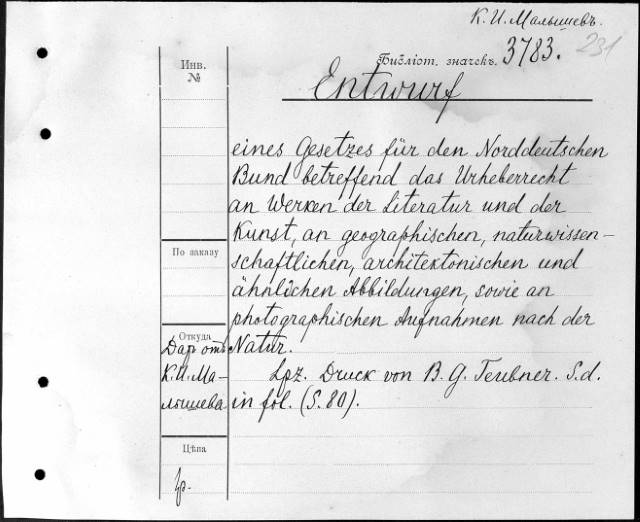 К. И. Малышевъ.
Библіот. значекъ. 3783. 231
Инв.
№
Entwurf
eines Gesetzes für den Norddeutschen
Bund betreffend das Urheberrecht
an Werken der Literatur und der
Kunst, an geographischen, naturwissen-
schaftlichen, architektonischen und
ähnlichen Abbildungen, sowie an
photographischen Aufnahmen nach der
Natur.
Lpz. Druck von B. G. Teubner. S. d.
in fol. (S. 80).
По заказу
Откуда
Даръ отъ
К. И. Ма-
лышева
Цѣна